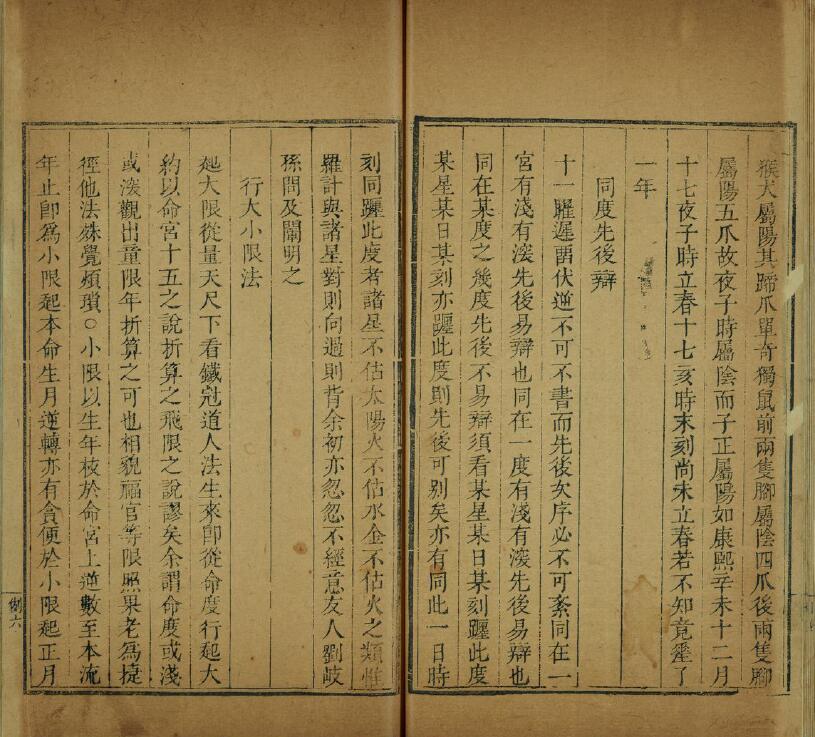 猴犬屬陽其蹄爪單奇獨鼠前兩隻腳屬陰四爪後兩隻腳
屬陽五爪故夜子時屬陰而子正屬陽如康熙辛未十二月
十七夜子時立春十七亥時末刻尚未立春若不知竟壓了
一年
同度先後辯
十一曜遲留伏逆不可不書而先後次序必不可紊同在一
宮有淺有深先後易辯也同在一度有淺有深先後易辯也
同在某度之幾度先後不易辯須看某星某日某刻躔此度
某星某日某刻亦躔此度則先後可別矣亦有同此一日時
刻同躔此度者諸星不佔太陽火不佔水金不佔火之類惟
羅計與諸星對則向過則背余初亦忽忽不經意友人劉岐
孫問及闡明之
行大小限法
起大限從量天尺下看鐵冠道人法生來即從命度行起大
約以命宮十五之說折算之飛限之說謬矣余謂命度或淺
或深觀出童限年折算之可也相貌福官等限照果老為捷
徑他法殊覺煩瑣○小限以生年枝於命宮上逆數至本流
年止即為小限起本命生月逆轉亦有貪便於小限起正月
例六